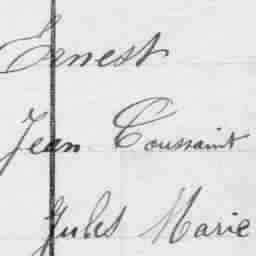 Ernest
Jean Toussaint
Jules Marie